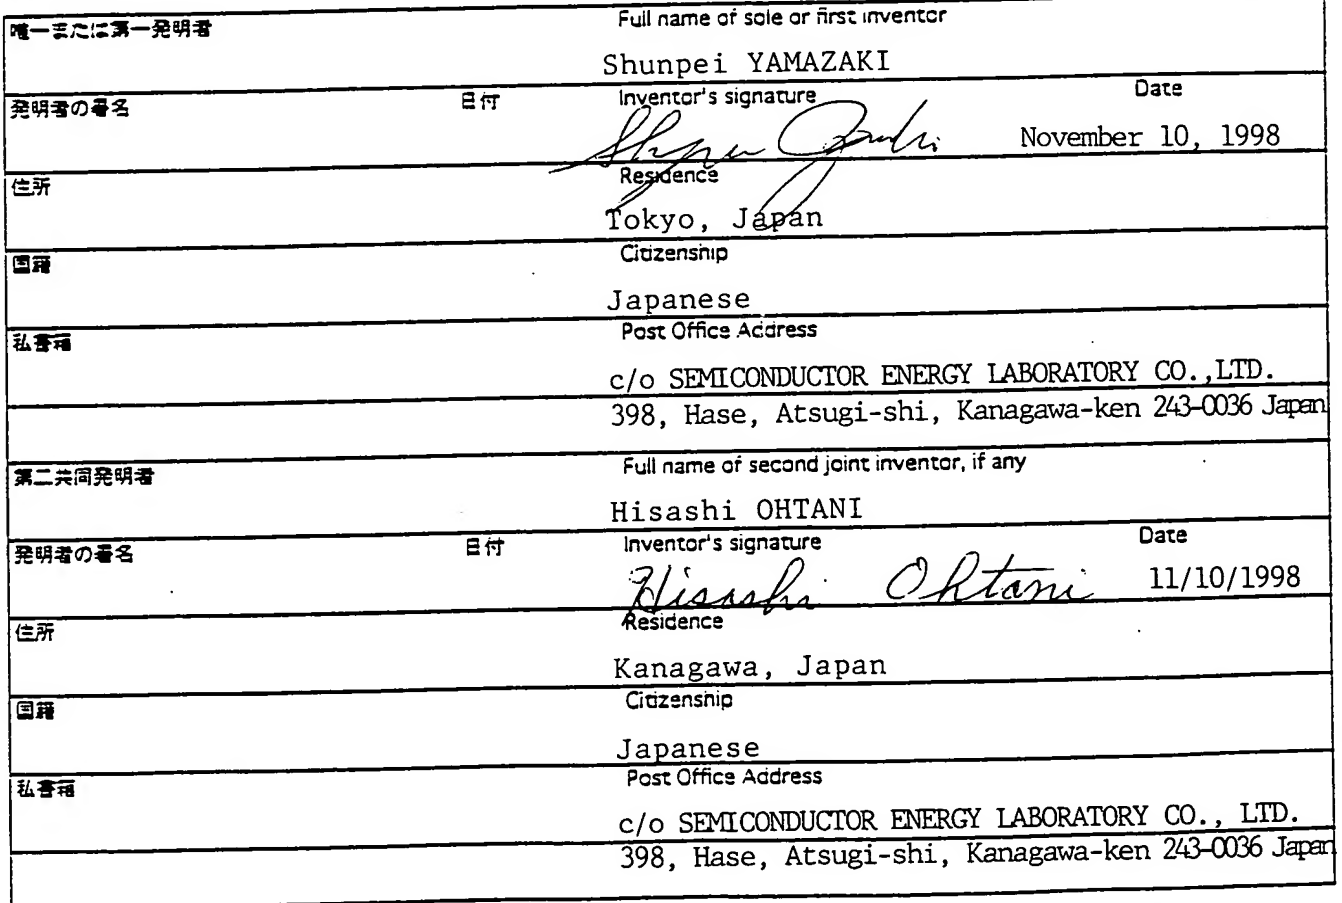 唯一または第一発明者 Full name of sole or first inventor
Shunpei YAMAZAKI
発明者の署名 日付 Inventor's signature Date
November 10, 1998
住所 Residence
Tokyo, Japan
国籍 Citizenship
Japanese
私書箱 Post Office Address
c/o SEMICONDUCTOR ENERGY LABORATORY CO.,LTD.
398, Hase, Atsugi-shi, Kanagawa-ken 243-0036 Japan
第二共同発明者 Full name of second joint inventor, if any
Hisashi OHTANI
発明者の署名 日付 Inventor's signature Date
Hisashi Ohtani 11/10/1998
住所 Residence
Kanagawa, Japan
国籍 Citizenship
Japanese
私書箱 Post Office Address
c/o SEMICONDUCTOR ENERGY LABORATORY CO., LTD.
398, Hase, Atsugi-shi, Kanagawa-ken 243-0036 Japan